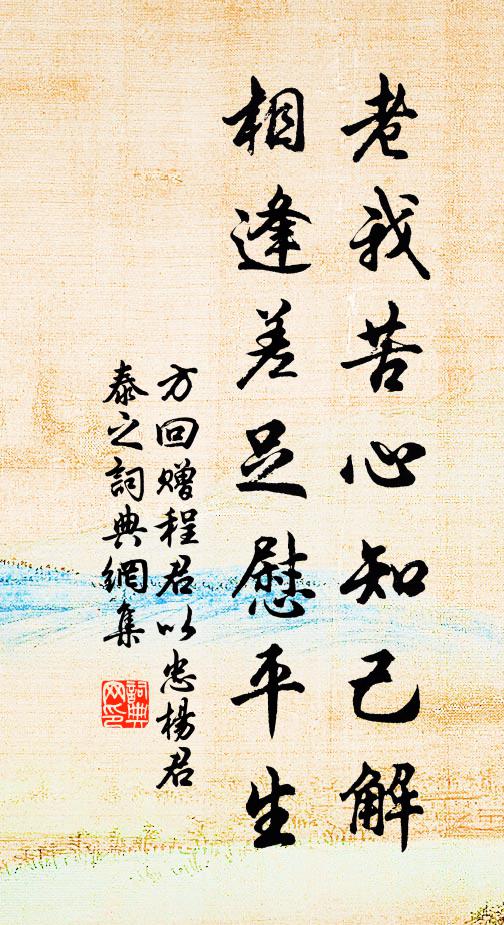 老我苦心知己解
相逢差足慰平生
方回赠程君以忠杨君
泰之词典網集
詞典
网印